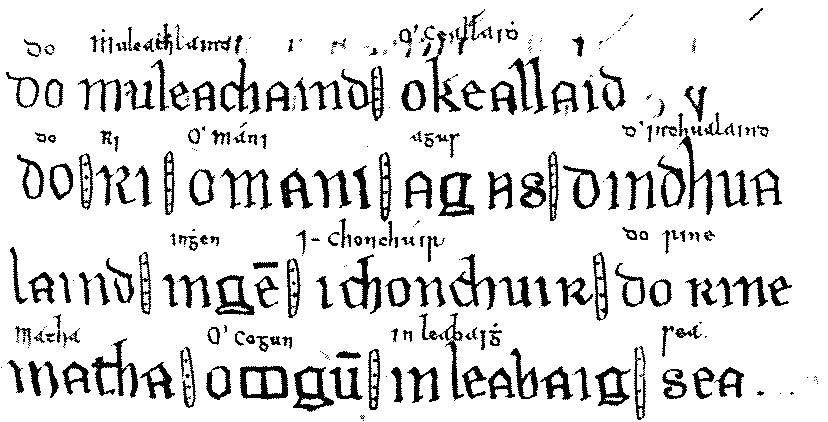 do Muleachlaind O'Ceallaiġ
do muleachaind okeallaid
do Ri O'Máni agus d'indhualaind
do ri omani agas dindhua
ingen I-Chonchúir do rine
laind ingē ichonchuir do rine
Matha O'Cogun in leabaiġ sea.
matha o gū in leabaig sea.